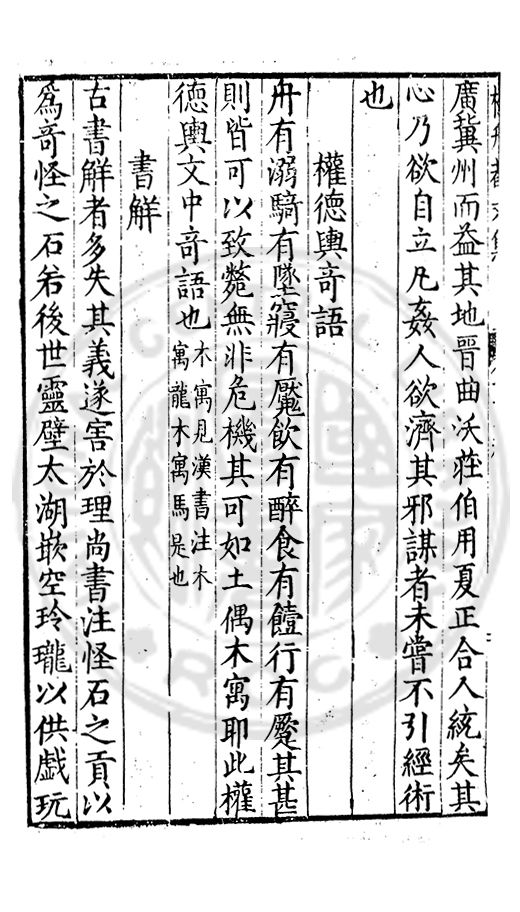 廣冀州而益其地晉曲沃莊伯用夏正合人統矣其
心乃欲自立凡姦人欲濟其邪謀者未嘗不引經術
也
權德輿奇語
舟有溺騎有墜寢有魘飲有醉食有饐行有蹷其甚
則皆可以致斃無非危機其可如土偶木寓耶此權
德輿文中奇語也木寓見漢書注木
寓龍木寓馬是也
書解
古書解者多失其義遂害於理尚書注怪石之貢以
爲奇怪之石若後世靈壁太湖嵌空玲瓏以供戲玩